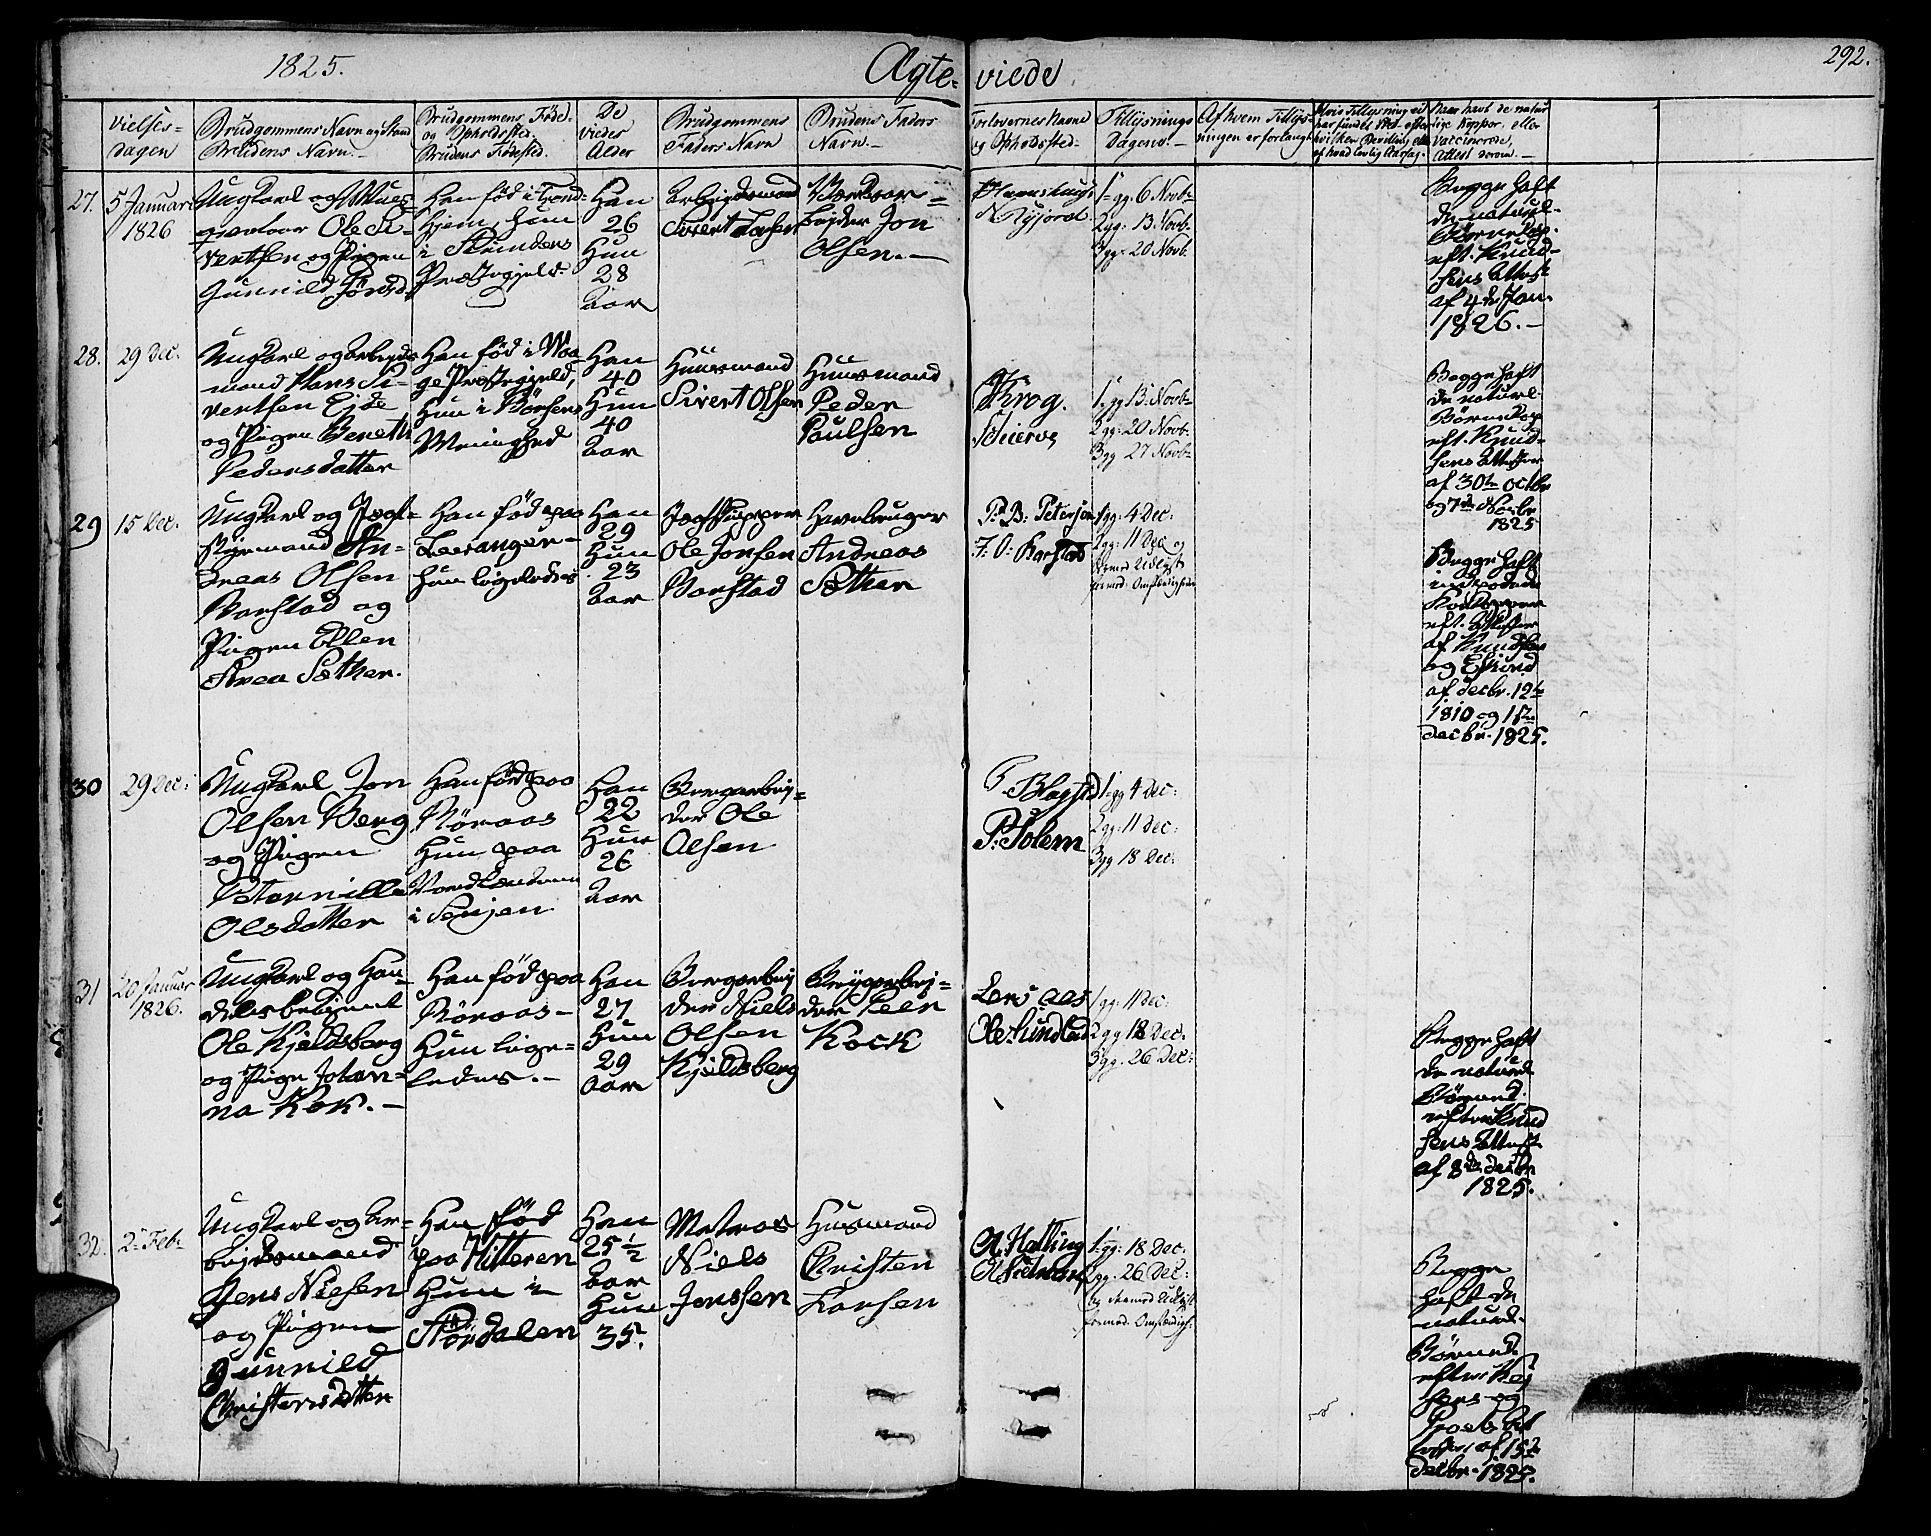 1825.
Ægte-viede
292.
Vielses-
dagen
Brudgommens Navn og Stand
Brudens Navn.
Brudgommens Føde-
og Opholdsted.
Brudens Fødested.
De
viedes
Alder
Brudgommens
Faders Navn
Brudens Faders
Navn.
Forlovernes Navne
og Opholdsted
Tillysnings
Dagene.
Af hvem Tillys-
ningen er forlangt
Naar havt de natur
lige Kopper, eller
Vaccinerede,
Attest derom.
27.
5 Januari
1826
Ungkarl og Muur-
Ole Si-
vertsen og Pigen
Gunnild Jonsd
Han fød i Trond-
hjem, hun
i
Præstegjeld.
Han
26
Hun
28
Aar
Arbejdsmand
Sivert
Jon
Olsen.
1ste gg 6 Novb
2 gg: 13. Novb.
3 gg: 20 Novb.
Begge haft
de naturl.
Børnekop.
eft. Knud-
sens Attest
af 4de Jan.
1826.
28.
29 Dec.
Ungkarl og Arbejds
mand Hans Si-
vertsen Ejde
og Pigen Bereth
Pedersdatter
Han fød i
ge Præstegjeld,
Hun i Børsens
Menighed
Han
40
Hun
40
Aar
Huusmand
Sivert Olsen
Huusmand
Peder
Paulsen
Krog.
1. gg 13. Novb
2 gg: 20 Novb.
3 gg 27 Novb
Begge haft
de naturl.
Børnekop
eft. Knud-
sens Attester
af 30te octbr
og 7de Novbr
1825
29
15 Dec.
Ungkarl og Jagt-
styrmand An-
dreas Olsen
Barstad og
Pigen Ellen
Anea Sæther.
Han fød paa
Leexanger
hun ligeledes
Han
29
Hun
23
Aar
Jagtskipper
Ole Jonsen
Barstad
Andreas
Sæther
P: B: Petersen
J. O. Barstad
1 gg: 4 Dec:
2 gg: 11 Dec og
dermed Udlyst
formed: Omstændigheder
Begge haft
Kokopper
eft. Attester
af Knudsen
og
af decbr. 12te
1810 og 15de
decbr. 1825.
30
29 Dec:
Ungkarl Jon
Olsen Berg
og Pigen
Peternille
Olsdatter
Han fød paa
Røraas
Hun paa
i Senjen
Han
22
Hun
26
Aar
Bergarbej-
der Ole
Olsen
T. Blegstad
P: Solem
1. gg 4 Dec:
2 gg: 11 Dec:
3 gg 18 Dec:
31
20 Januar
1826.
Ungkarl og Han-
delsbetjent
Ole Kjeldsberg
og Pige Johan-
na Kok.
Han fød paa
Røraas
Hun lige-
ledes.
Han
27
Hun
29
Aar
Bergarbej
der Niels
Olsen
Kjeldsberg
der Peer
Kock
Lars Aas
Ole Sundlad
1 gg: 11 Dec:
2 gg 18 Dec:
3 gg. 26 Dec:
Begge haft
de naturl
Børnek.
efter Knud
sens Attest
af 8de decbr
1825.
32.
2 Feb
Ungkarl og Ar-
bejdsmand
Jens Nielsen
og Pigen
Gunnild
Christensdatter
Han fød
paa Hitteren
Hun i
Størdalen
Han
25 1/2
Aar
Hun
35.
Matros
Niels
Jonssen
Husmand
Christen
Larsen
A. Halling
1. gg: 18 Dec:
2 gg. 26 Dec:
og dermed Udlyst
formed. Omstændigh:
Begge
haft de
naturl.
Børnek.
efter
sens og
af 15de
decbr. 1825.